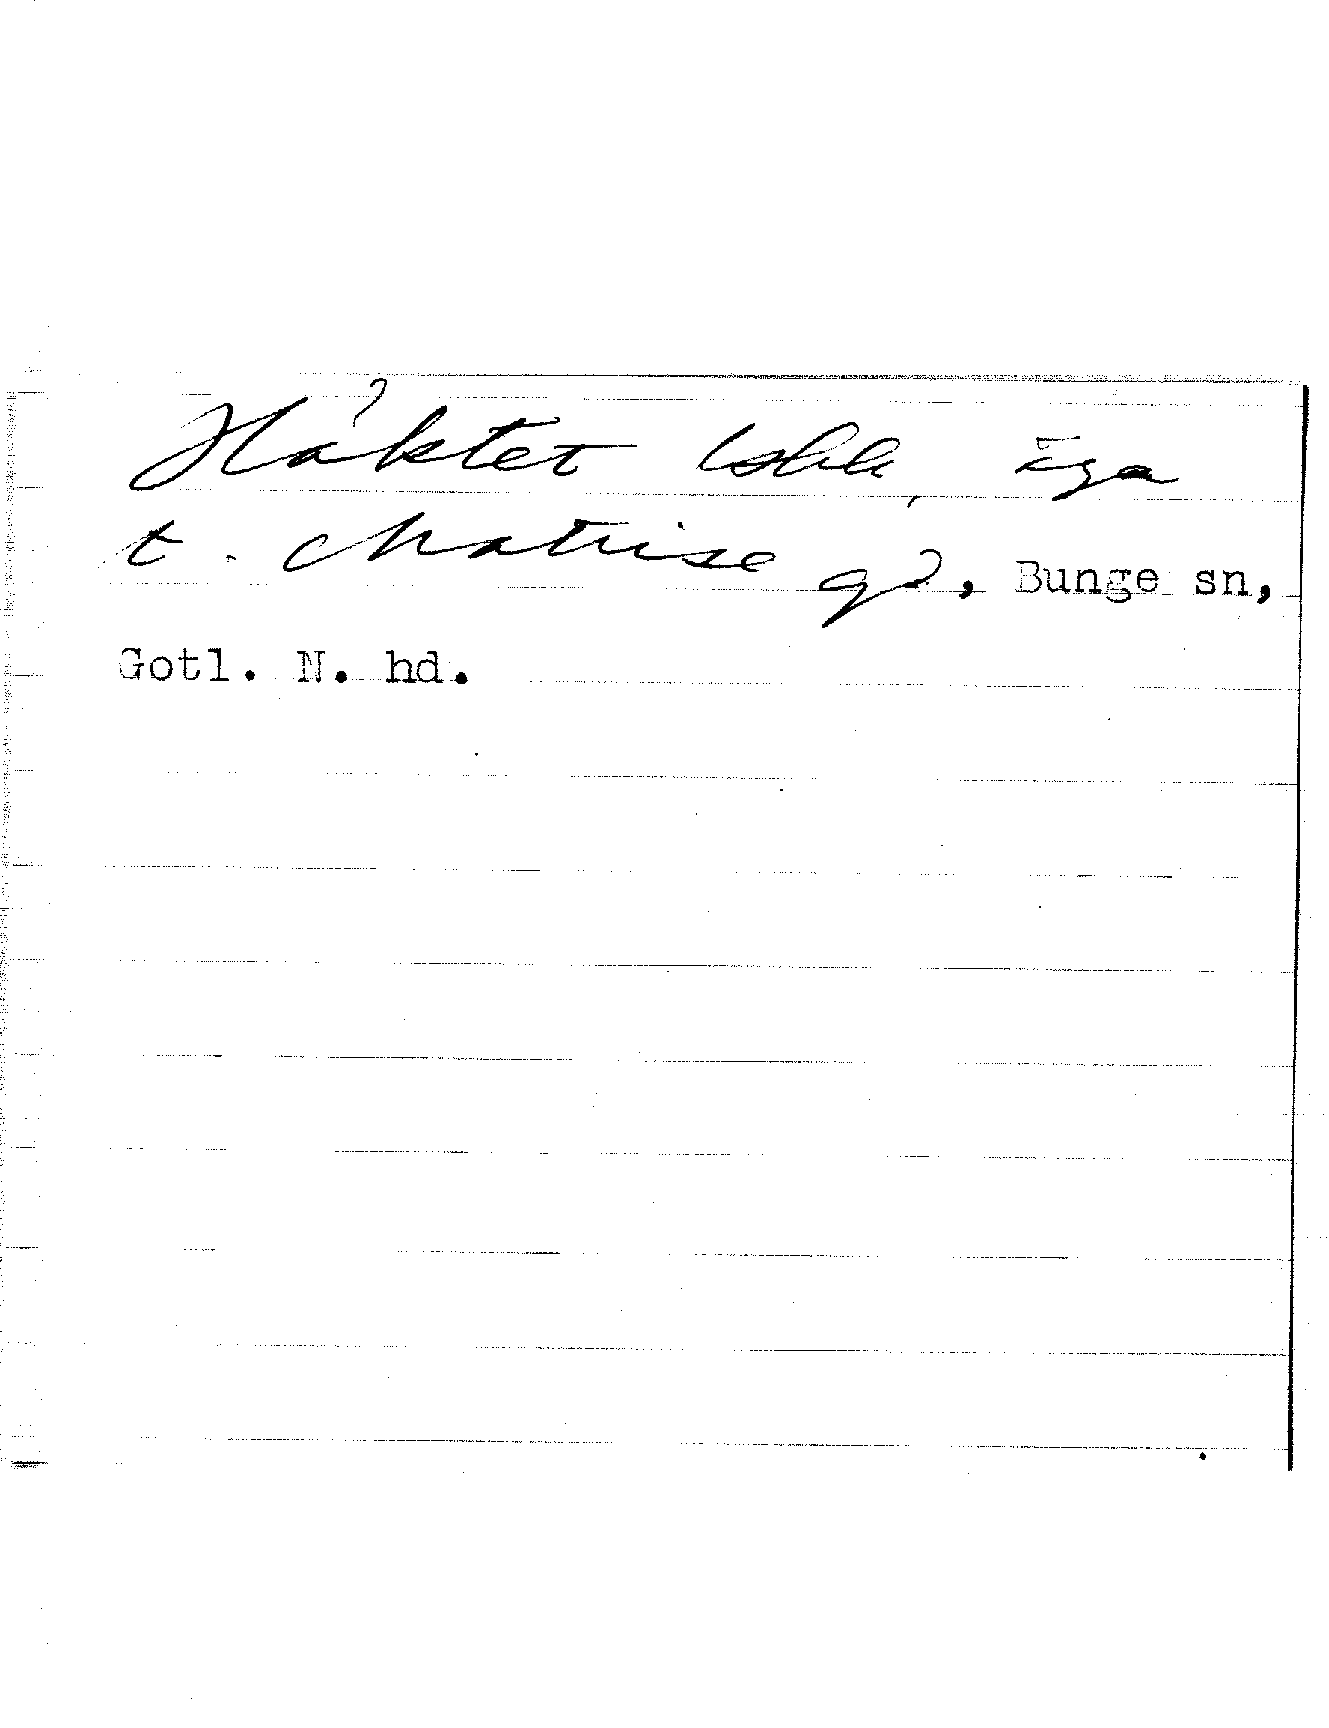 Håktet lslle, äga
t. Matrise gd, Bunge sn,
Gotl. N. hd.